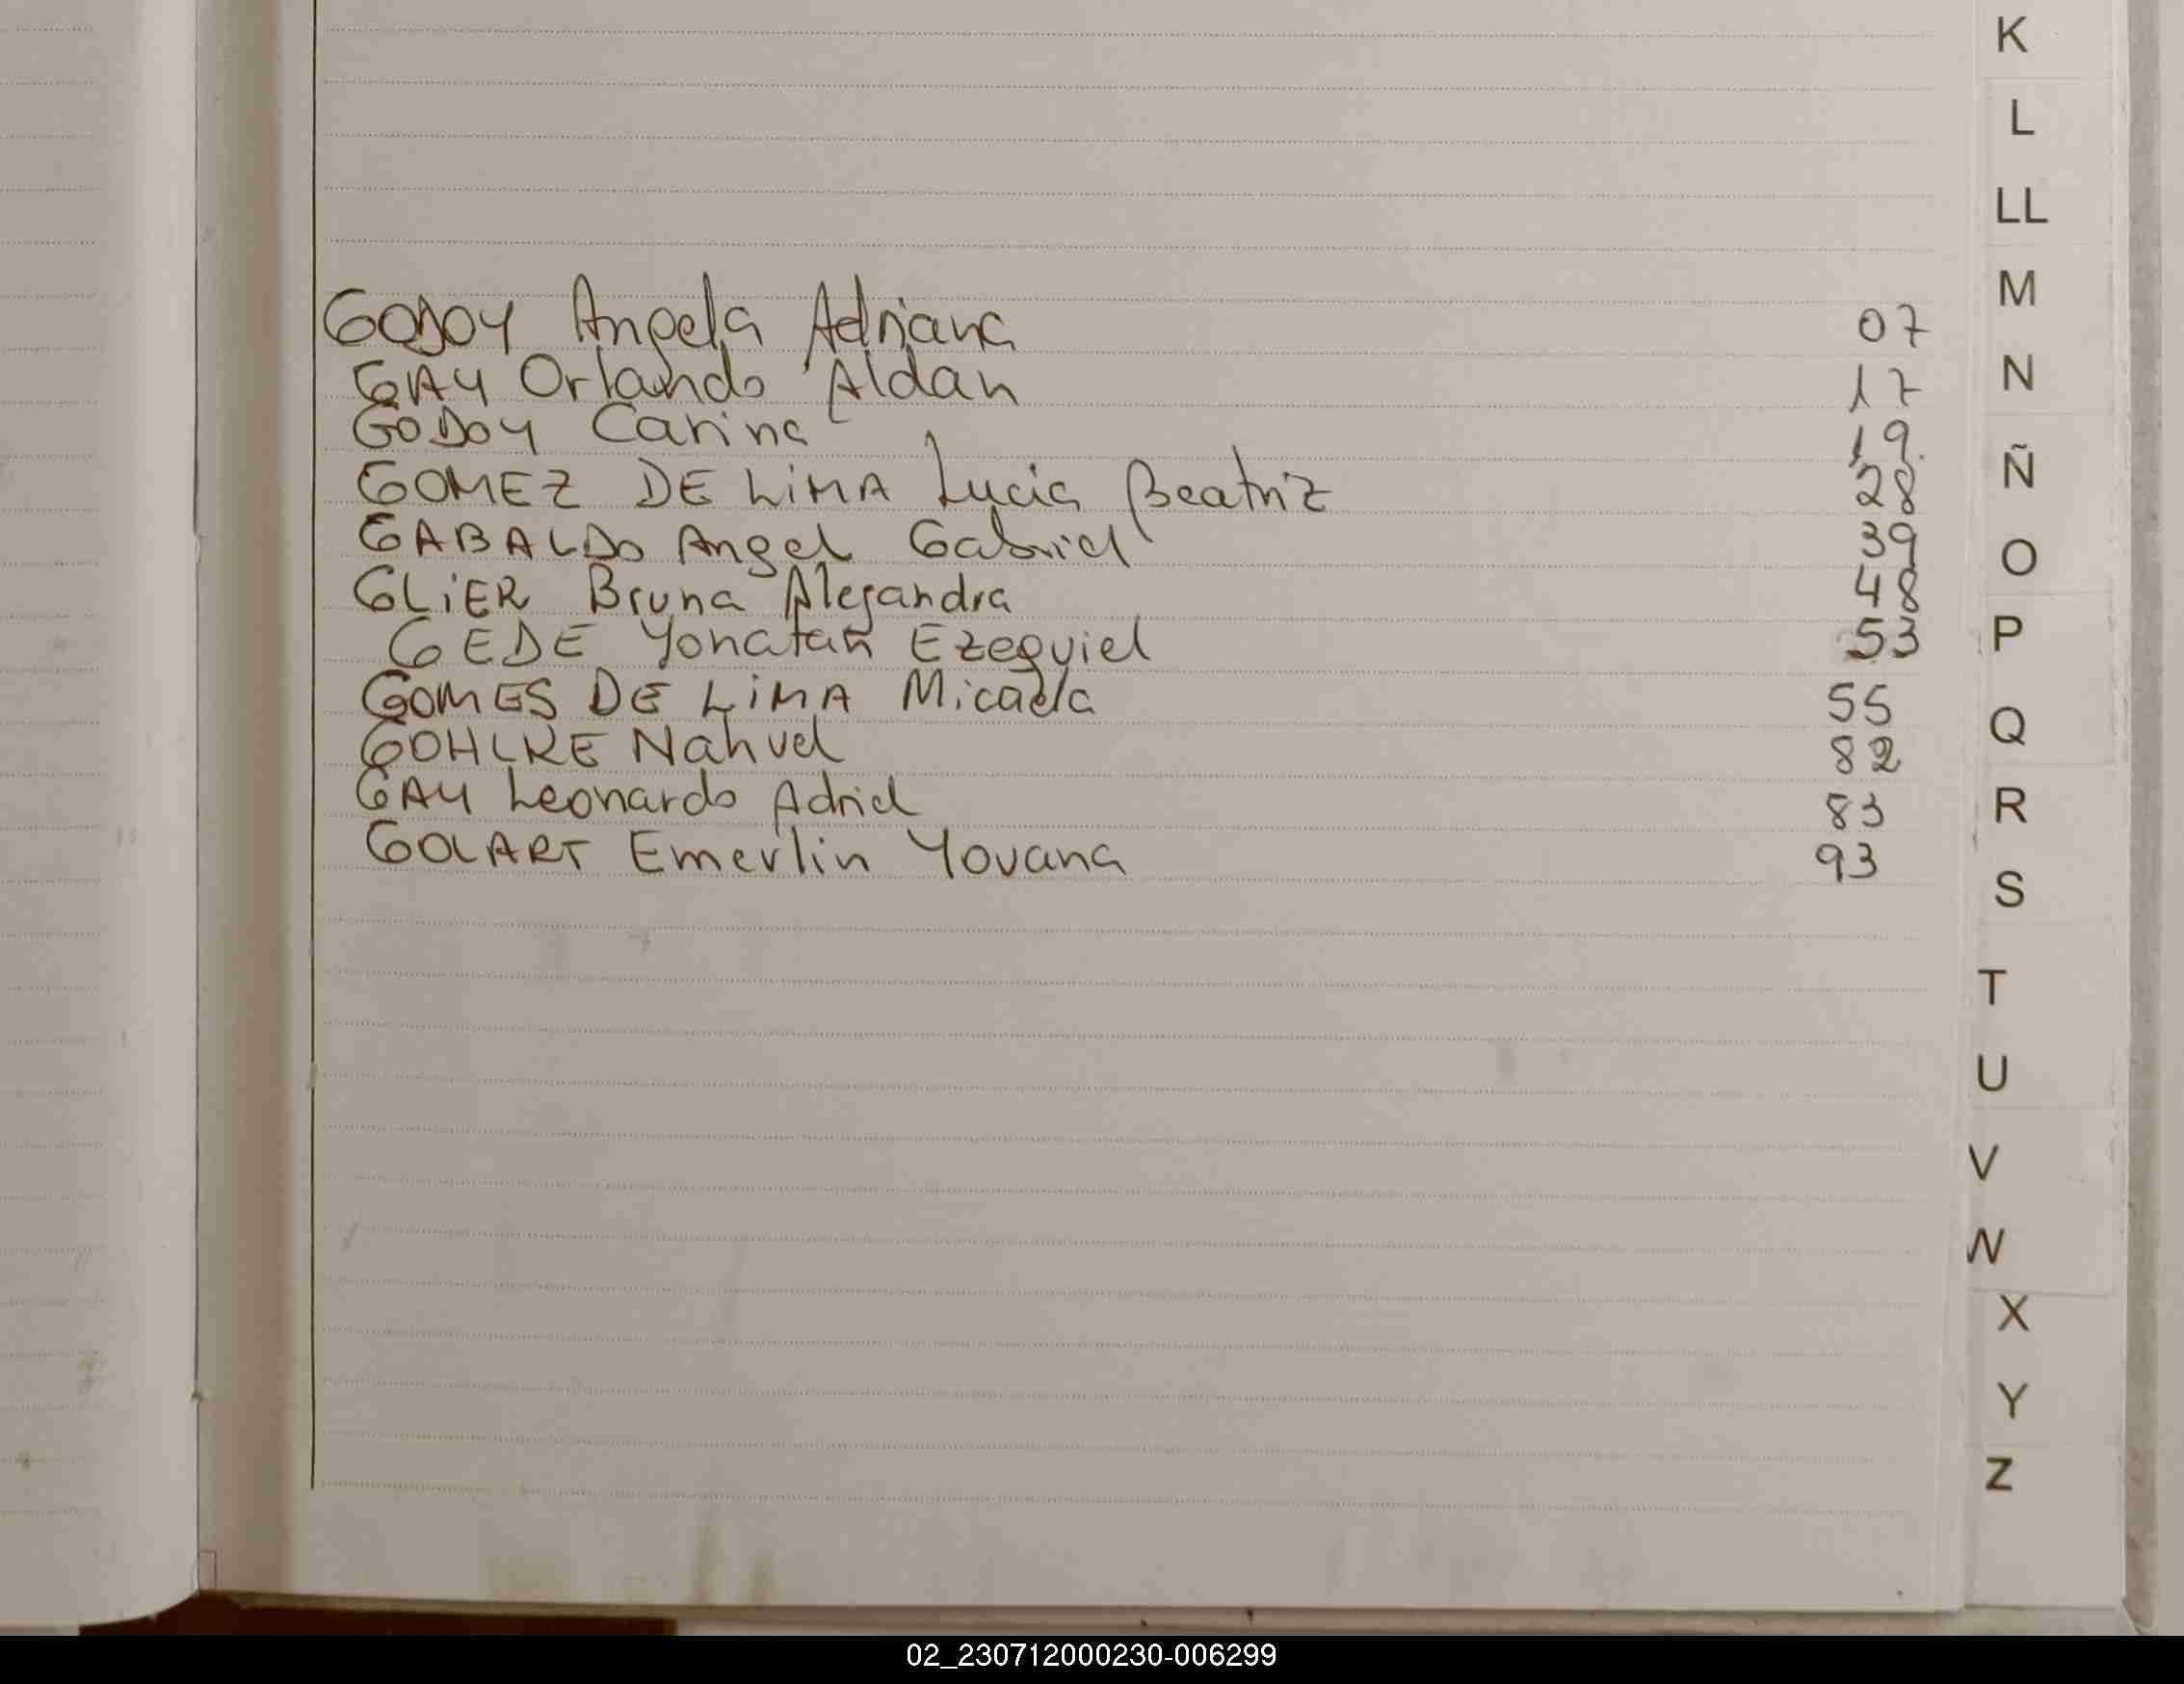 K
L
LL
M
GODOY Angela Adriana 07
N
GAY Orlando Aldan 17
GODOY Carina 19
Ñ
GOMEZ DE LiMA Lucia Beatriz 28
GABALDO Angel Gabriel 39
O
GLiER Bruna Alejandra 48
GEDE Yonatan Ezequiel 53
P
GOMES DE LiMA Micaela 55
Q
GOHLKE Nahuel 82
GAY Leonardo Adriel 83
R
GOLART Emerlin Yovana 93
S
T
U
V
W
X
Y
Z
02_230712000230-006299